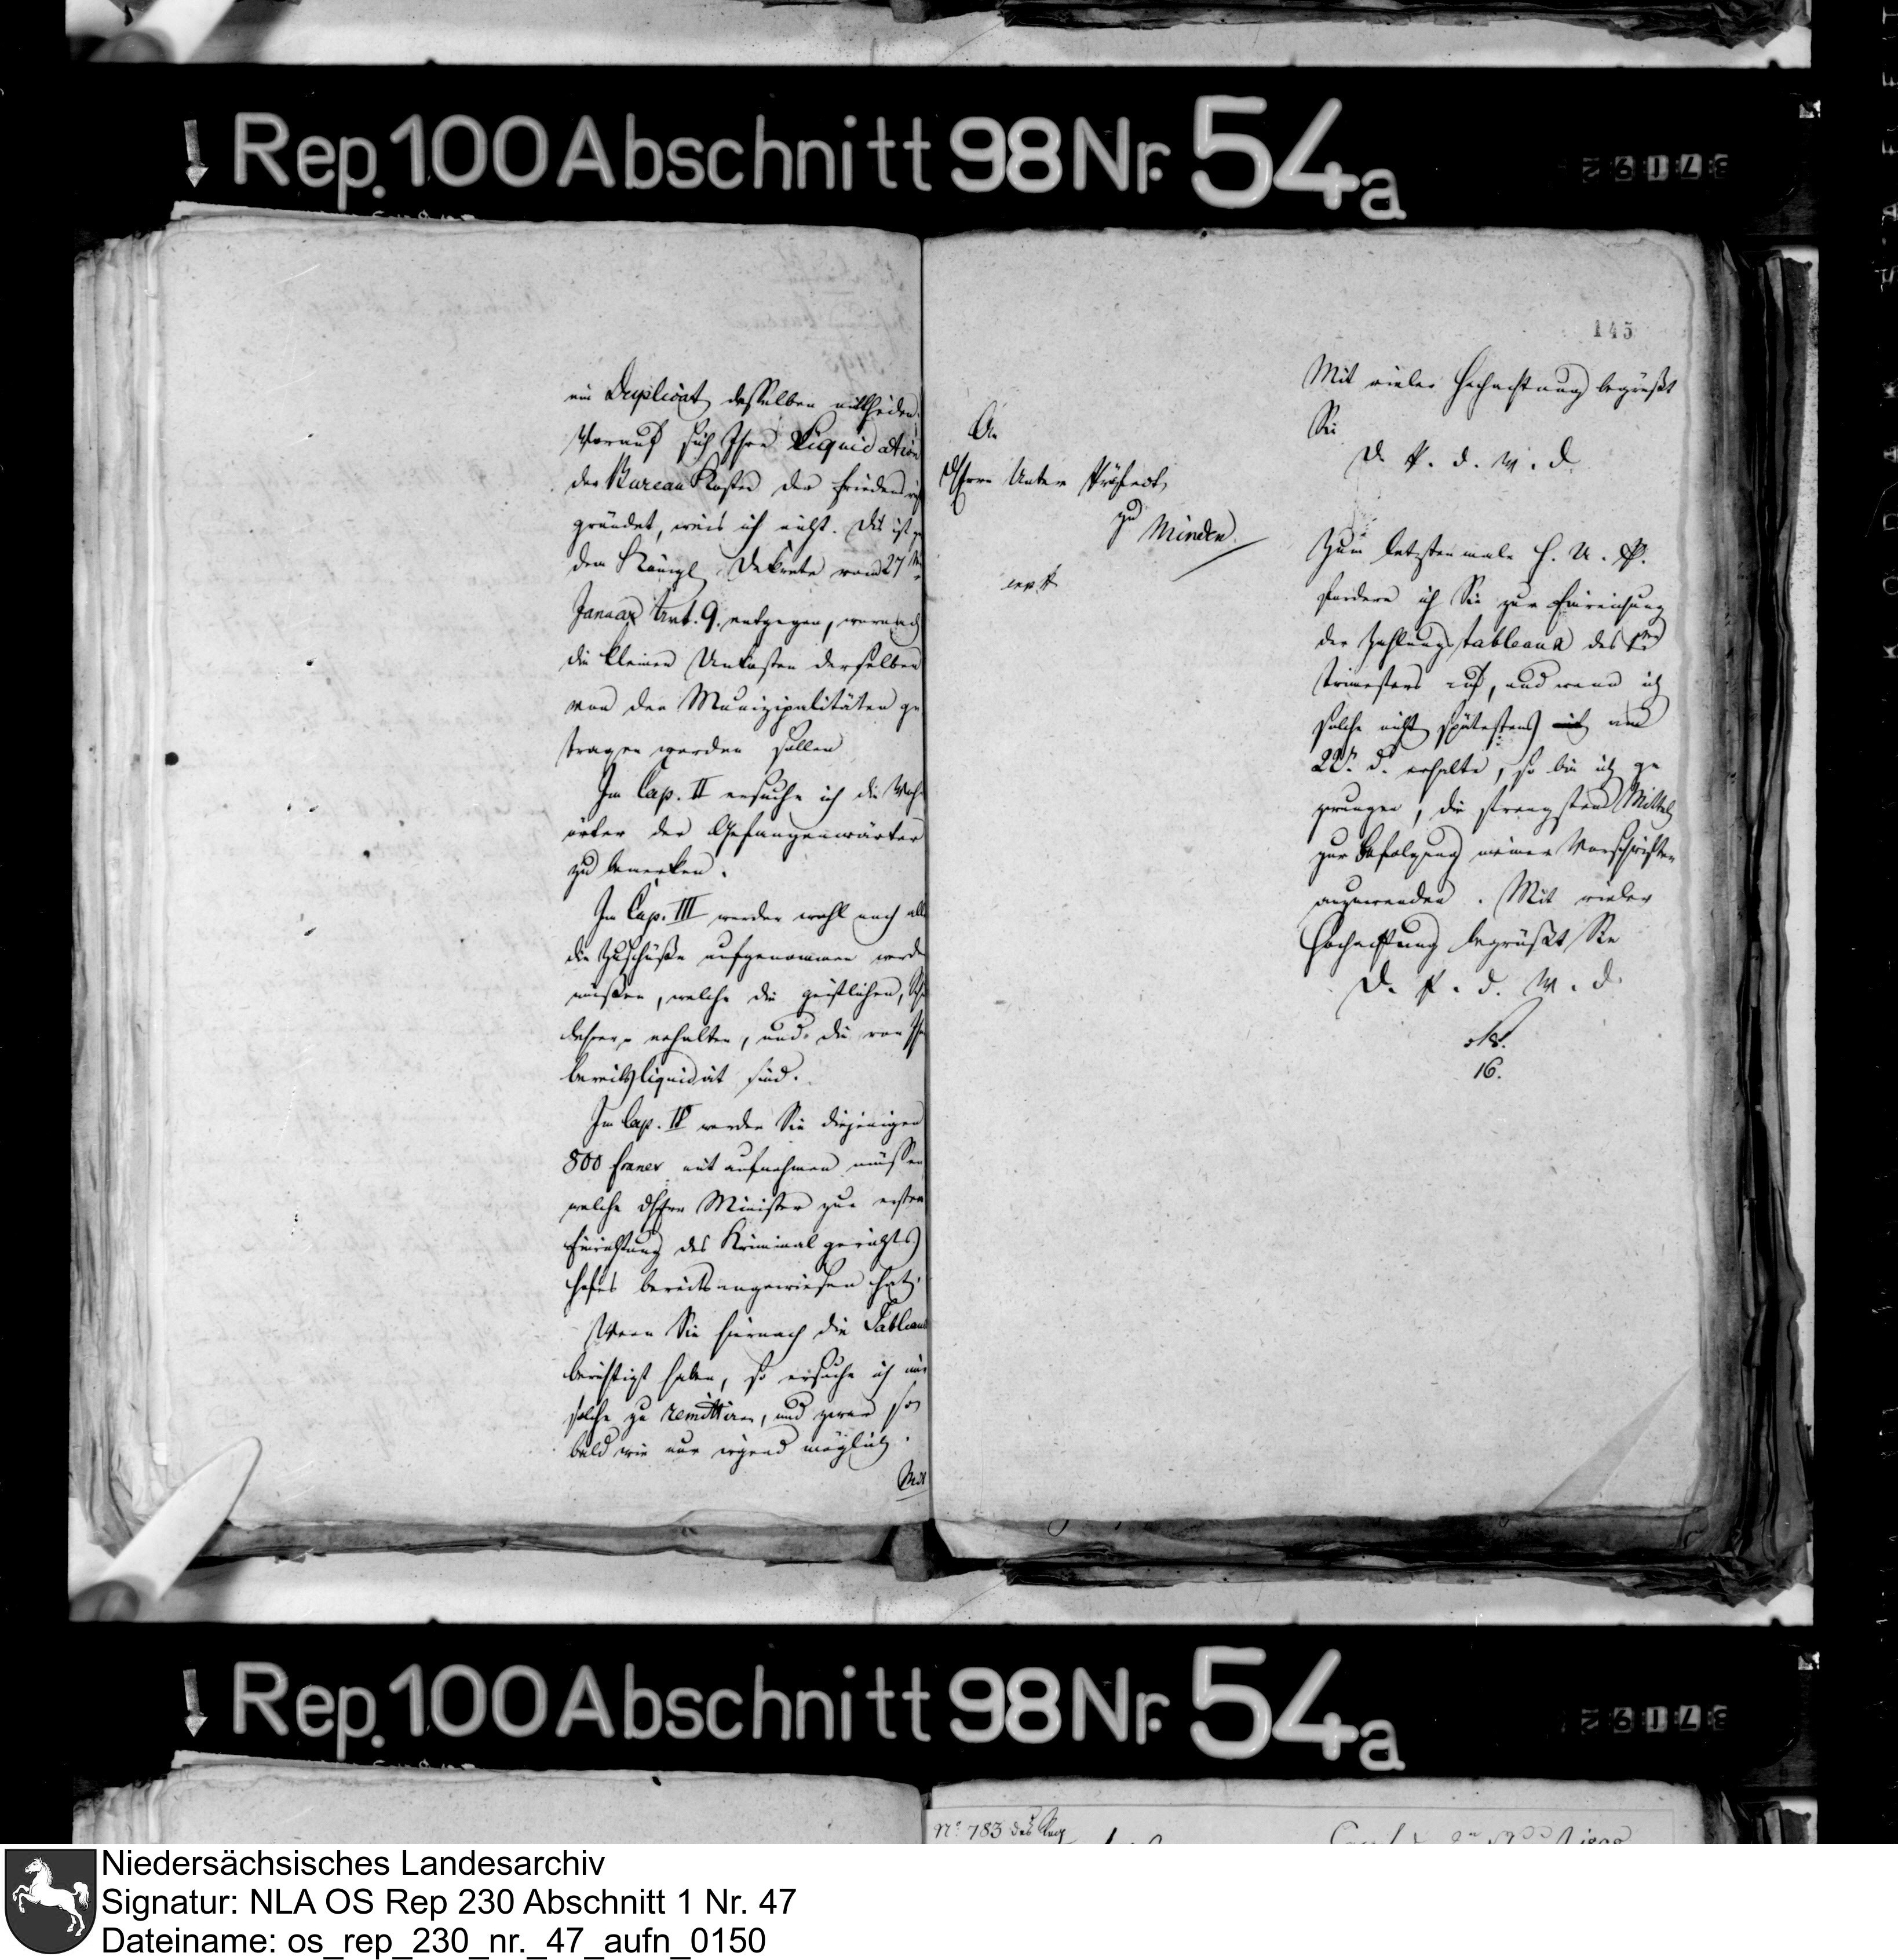 Rep. 100 Abschnitt 98 Nr. 54a
37192
ein Duplicat desselben mittheilen.
Worauf sich Ihre Liquidation
der Bureau Kosten der Friedensrich
gründet, weis ich nicht. Dis ist
dem Königl. Dekrete vom 27
Januar Art. 9. entgegen, wornach
die kleinen Unkosten derselben
von den Munizipalitäten ge
tragen werden sollen
Im Cap. II ersuche ich die Wohn
örter der Gefangenwärter
zu bemerken.
Im Cap. III werden wohl noch alle
die Zuschüße aufgenommen werden
müßen, welche die geistlichen,
lehrer erhalten, und die von Ihnen
bereits liquidirt sind.
Im Cap. IV werden Sie diejenigen
800 francs mit aufnehmen müssen
welche dHerr Minister zur ersten
Einrichtung des Kriminal gerichts
hofes bereits angewiesen hat.
Wenn Sie hiernach die Tableaux
berichtigt haben, so ersuche ich mir
solche zu remittiren, und zwar so
bald wie nur irgend möglich.
Mit
145
Mit vieler Hochachtung begrüßt
Sie
D. P. d. W. D.
An
dHerrn Unter Präfect
zu Minden.
Zum letztenmale H. U. P.
fordere ich Sie zur Einreichung
der Zahlungstableaux des 1ten
trimesters auf, und wenn ich
solche nicht spätestens am
22. d. erhalte, so bin ich ge
zwungen, die strengsten Mittel
zur Befolgung meiner Vorschriften
anzuwenden. Mit vieler
Hochachtung begrüßt Sie
D. P. d. W. D.
16.
Rep. 100 Abschnitt 98 Nr. 54a
37192
No 783 des Reg
Niedersächsisches Landesarchiv
Signatur: NLA OS Rep 230 Abschnitt 1 Nr. 47
Dateiname: os_rep_230_nr._47_aufn_0150